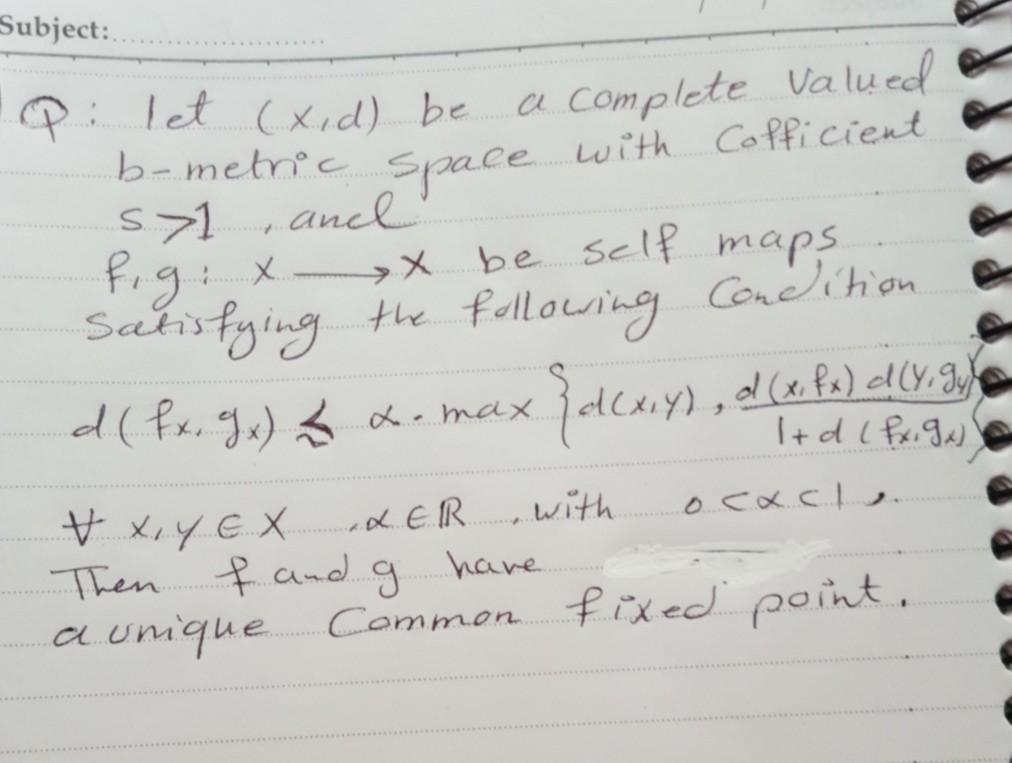 Subject:
Q: let (x,d) be a complete Valued
b-metric space with Cofficient
s>1 , and
f,g: x ⟶ x be self maps.
Satisfying the following Condition
d(fx,gx) ≲ α. max {d(x,y), d(x,fx) d(y,gy) / 1+d(fx,gx)}
∀ x,y ∈ X ,α ∈ ℝ , with 0<α<1,.
Then f and g have
a unique Common fixed point.